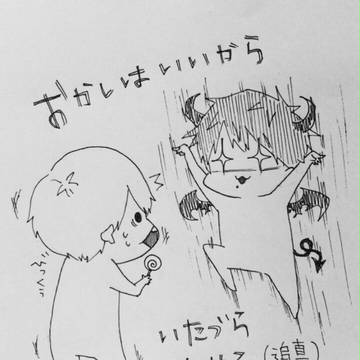 おかしはいいから
いたづら
(迫真)